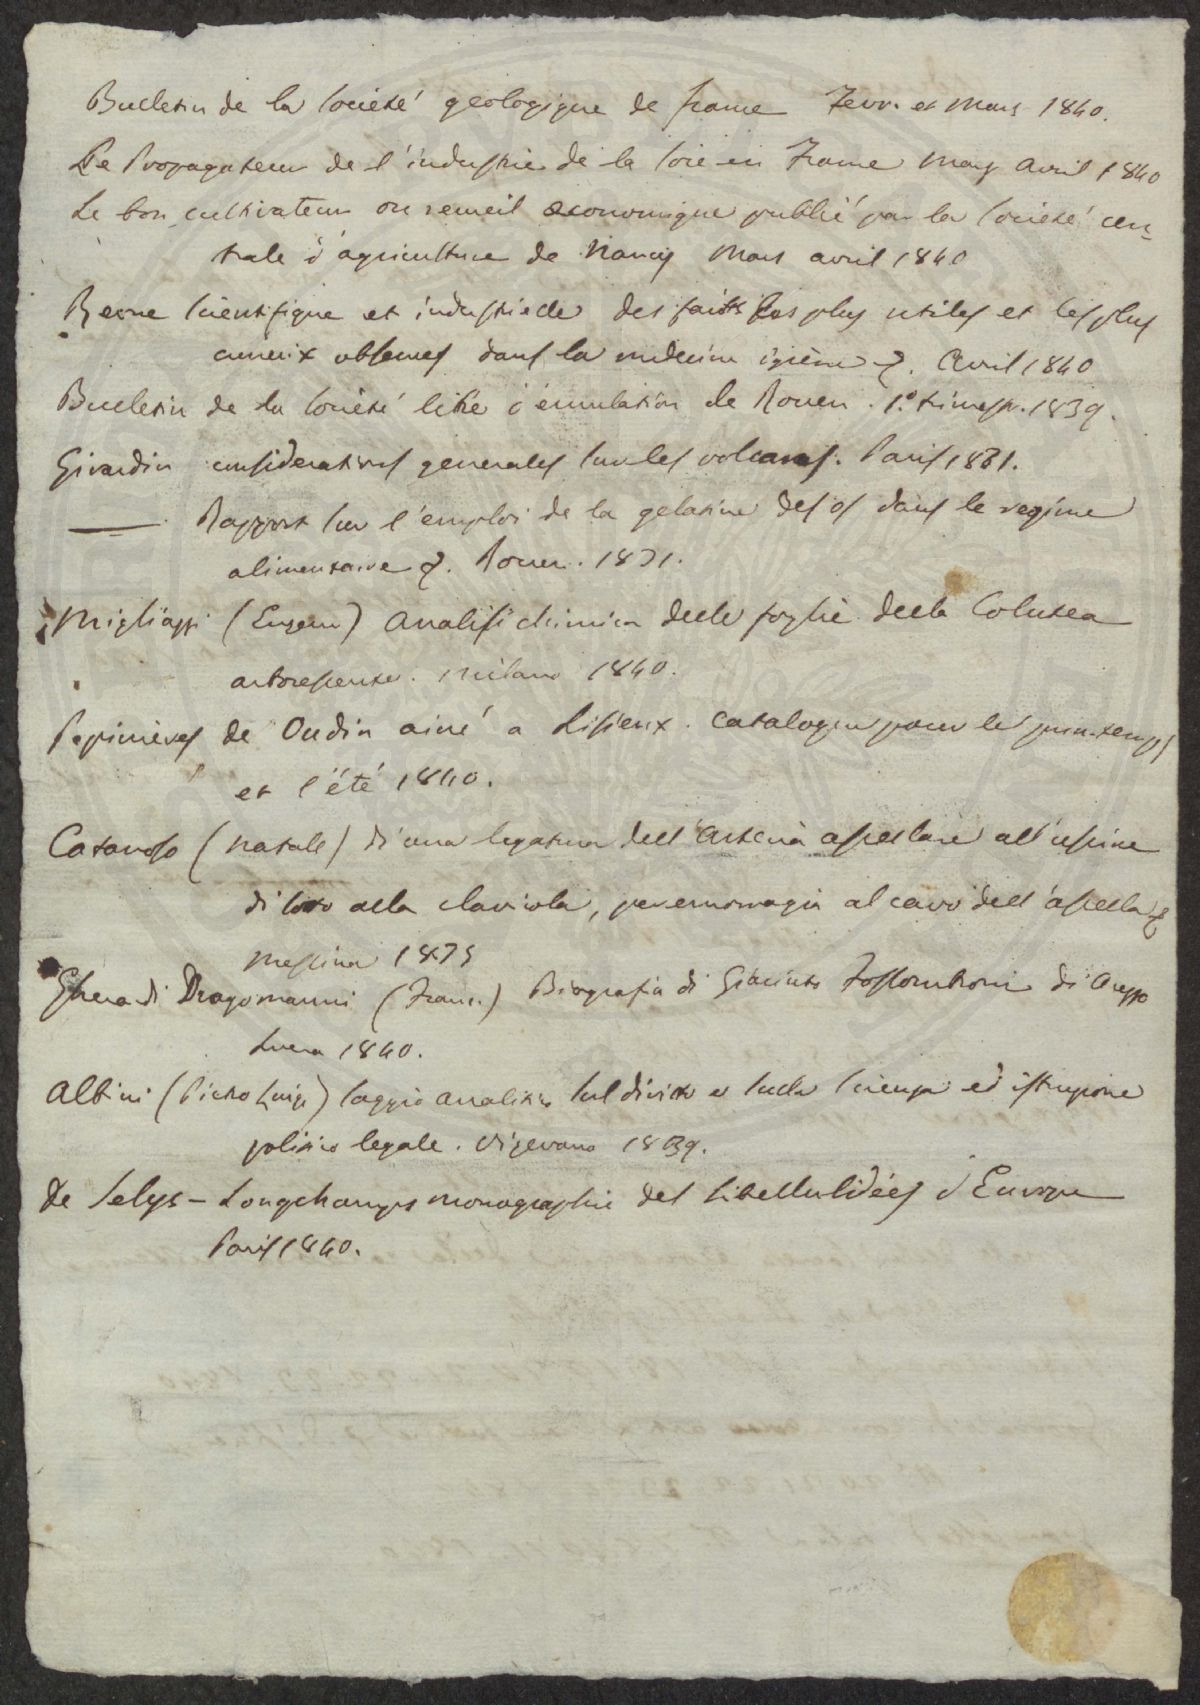 Bulletin de la Société géologique de france Fevr. et Mars 1840.
Le Propagateur de l'industrie de la Soie en France Mars Avril 1840
Le bon cultivateur ou recueil œconomique publié par la Société cen-
trale d'agriculture de Nancy Mars avril 1840
Revue Scientifique et industrielle des faits les plus utiles et les plus
curieux observes dans la medecine igiene &. Avril 1840
Bulletin de la Société libre d'émulation de Rouen. 1.º trimestr. 1839.
Girardin considerations generales sur les volcans. Paris 1831.
—— Rapport sur l'emploi de la gelatine des os dans le regime
alimentaire &. Rouen. 1831.
Migliazzi (Eugen) Analisi chimica delle foglie della Colutea
arborescente. Milano 1840.
Pepinières de Oudin ainé a Lisieux. Catalogue pour le printemps
et l'été 1840.
Catanoso (Natale) di una legatura dell'Arteria ascellare all'uscire
di sotto alla clavicola, per emorragia al cavo dell'ascella &
Messina 1835
Gherardi Dragomanni (Franc.) Biografia di Giacinto Fossombroni di Arezzo
Lucca 1840.
Albini (Pietro Luigi) Saggio analitico sul diritto e sulla Scienza ed istruzione
politico legale. Vigevano 1839.
De Selys-Longchamps monographie des Libellulidées d'Europe
Paris 1840.